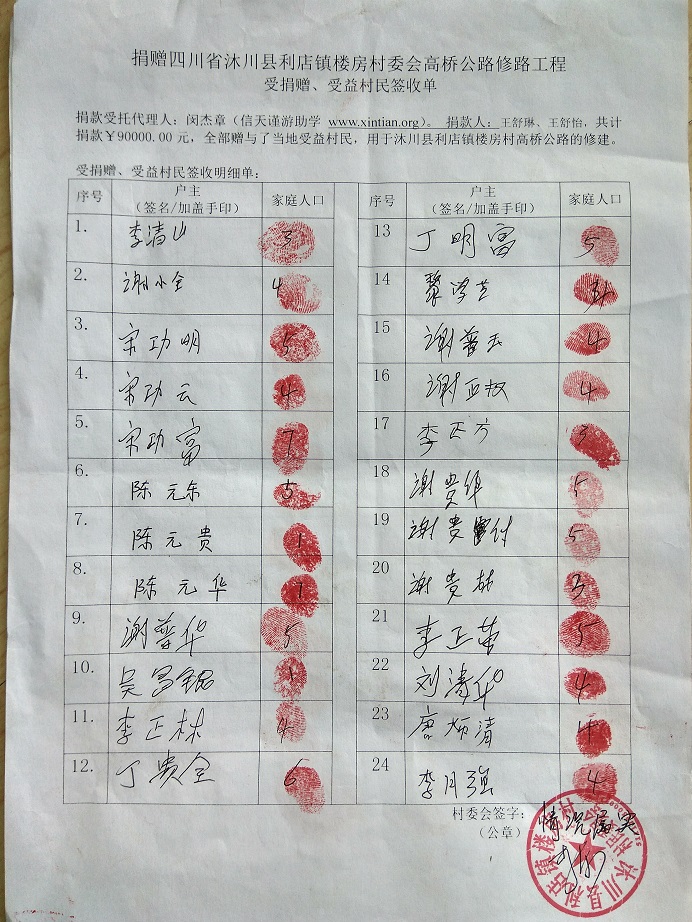 捐赠四川省沐川县利店镇楼房村委会高桥公路修路工程
受捐赠、受益村民签收单
捐款受托代理人：闵杰章（信天谨游助学 www.xintian.org）。 捐款人：王舒琳、王舒怡，共计
捐款￥90000.00 元，全部赠与了当地受益村民，用于沐川县利店镇楼房村高桥公路的修建。
受捐赠、受益村民签收明细单：
序号 户主（签名/加盖手印） 家庭人口 序号 户主（签名/加盖手印） 家庭人口
1. 李清山 3
2. 谢小全 4
3. 宋功明 5
4. 宋功云 4
5. 宋功富 7
6. 陈元东 5
7. 陈元贵 1
8. 陈元华 1
9. 谢普华 5
10. 吴昌银 1
11. 李正林 4
12. 丁贵全 6
13 丁明富 5
14
15 谢普玉 4
16 谢正权 4
17 李正方 3
18 谢贵华 5
19 谢贵付 5
20 谢贵林 3
21 李正荣 5
22 刘涛华 4
23 唐炳清 4
24 李月强 4
村委会签字：
（公章）
情况属实
沐川县利店镇楼房村